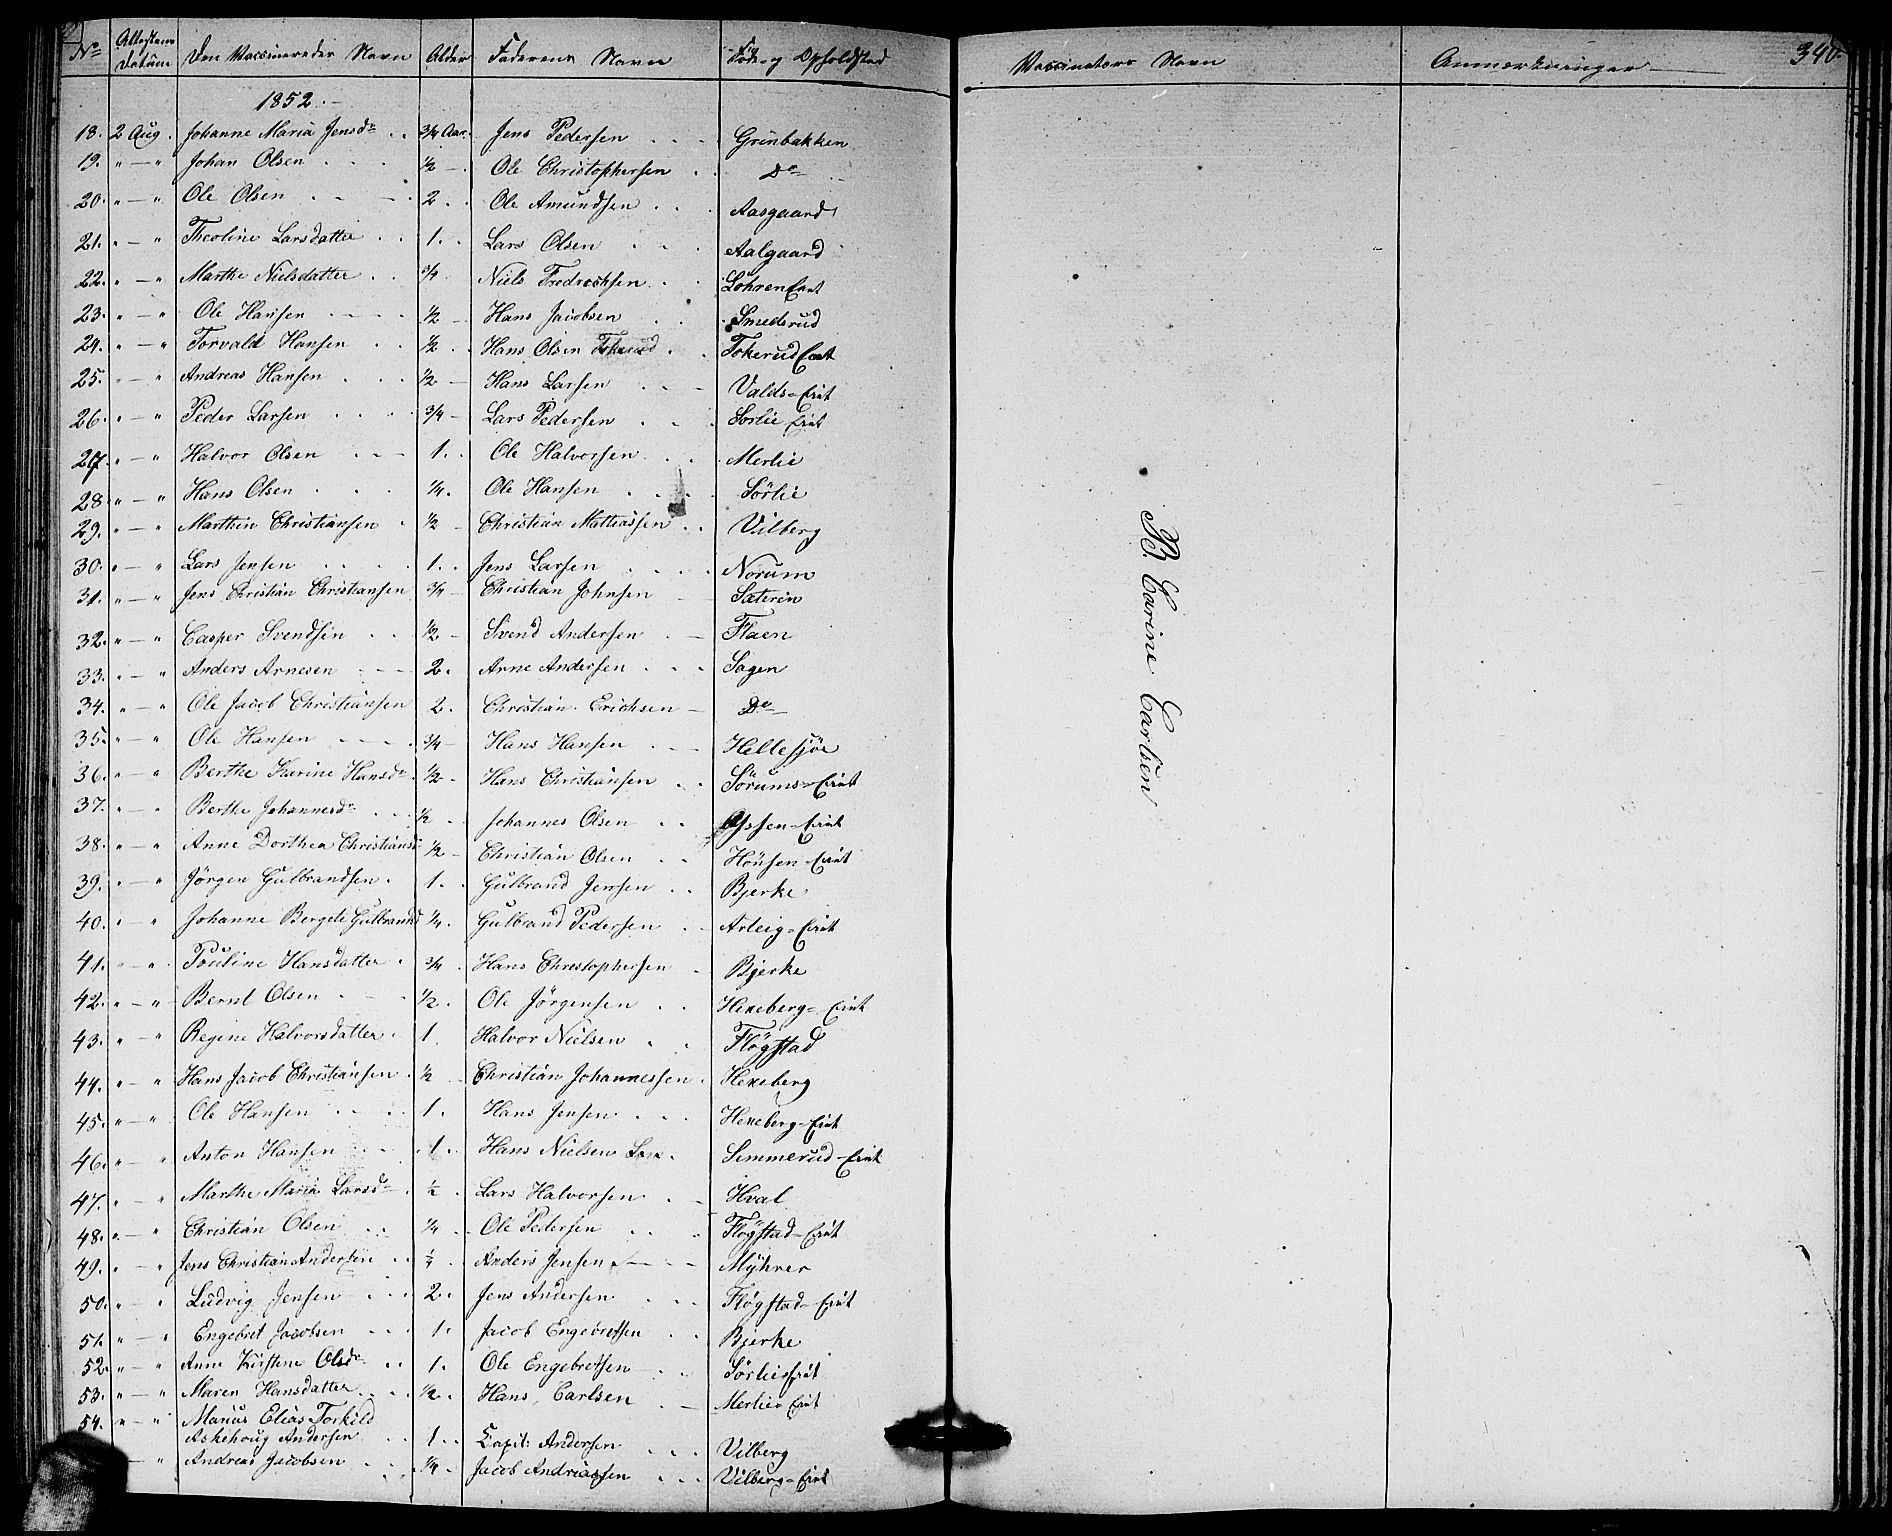 No Attestens Datum Den Vaccineredes Navn Alder Faderens Navn Føde- og Opholdsted Vaccinators Navn Anmærkninger 340.
1852.
18. 2 Aug. Johanne Maria Jensdr 3/4 Aar. Jens Pedersen Grinbakken
19. " — " Johan Olsen 1/2 — Ole Christophersen Do
20. " — " Ole Olsen 2. Ole Amundsen Aasgaard
21. " — " Theoline Larsdatter 1. Lars Olsen Aalgaard
22. " — " Marthe Nielsdatter 3/4 Niels Fredrechsen Løhren Eiet
23. " — " Ole Hansen 1/2 — Hans Jacobsen Smedsrud
24. " — " Torvald Hansen 1/2 Hans Olsen Tokerud Eiet
25. " — " Andreas Hansen 1/2 — Hans Larsen Valds-Eiet
26. " — " Peder Larsen 3/4 — Lars Pedersen Sorlie Eiet
27. " — " Halvor Olsen 1. Ole Halvorsen Merlie
28. " — " Hans Olsen 1/4. Ole Hansen Sörlie
29. " — " Marthin Christiansen 1/2 — Christian Mathiassen Vilberg
30. " — " Lars Jensen 1. Jens Larsen Norum
31. " — " Jens Christian Christiansen 3/4 — Christian Johnsen Sæteren
32. " — " Casper Svendsen 1/2 — Svend Andersen Flaen
33. " — " Anders Arnesen 2. Arne Andersen Sagen
34. " — " Ole Jacob Christiansen 2. Christian Erichsen Do
35. " — " Ole Hansen 3/4 — Hans Hansen Hellesjøe
36. " — " Berthe Karine Hansdr 1/2 — Hans Christiansen Sörums-Eiet
37. " — " Berthe Johannesdr 1/2 Johannes Olsen Eiet
38. " — " Anne Dorthea Christiansd 1/2 — Christian Olsen Hönsen-Eiet
39. " — " Jörgen Gulbrandsen 1. Gulbrand Jensen Bjerke
40. " — " Johanne Bergete Gulbrandsd 1/4. Gulbrand Pedersen Arteig-Eiet
41. " — " Pouline Hansdatter 3/4 Hans Christophersen Bjerke
42. " — " Bernt Olsen 1/2. Ole Jörgensen Hexeberg-Eiet
43. " — " Regine Halvorsdatter 1. Halvor Nielsen Flögstad
44. " — " Hans Jacob Christiansen 1/2 Christian Johannessen Hexeberg
45. " — " Ole Hansen 1. Hans Jensen Hexeberg-Eiet
46. " — " Anton Hansen 1. Hans Nielsen Semmerud-Eiet
47. " — " Marthe Maria Larsdr 1/2 Lars Halvorsen Hval
48. " — " Christian Olsen 1/4 Ole Pedersen Flögstad-Eiet
49. " — " Jens Christian Andersen Anders Jensen Myhrer
50. " — " Ludvig Jensen 2. Jens Andersen Flögstad-Eiet
51. " — " Engebret Jacobsen 1. Jacob Engebretsen Bjerke
52. " — " Anne Kirstine Olsdr 1. Ole Engebretsen Sörlie Eiet
53. " — " Maren Hansdatter 1/2. Hans Carlsen Merlie Eiet
54. " — " Marius Elias Torkild
Askehoug Andersen 1. Capit: Andersen Vilberg
— " Andreas Jacobsen 1/4 Jacob Andreassen Vilberg-Eiet
B. Carine Carlsen